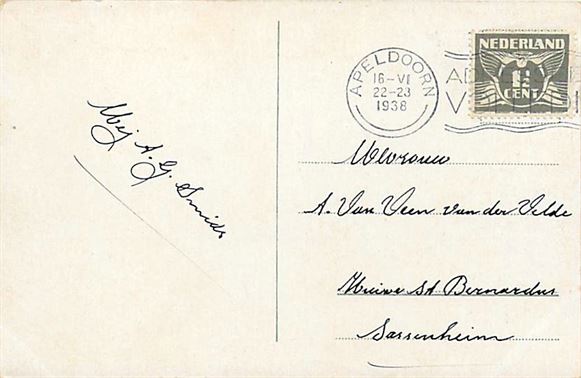 Mej A. G. Smids
APELDOORN
16-VI
22-23
1938
NEDERLAND
1½
CENT
Mevrouw
A. Van Veen van der Velde
Huize St Bernardus
Sassenheim